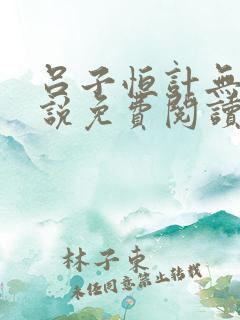 呂子恒計無
說免費閱讀
林子東
未經同意禁止轉載